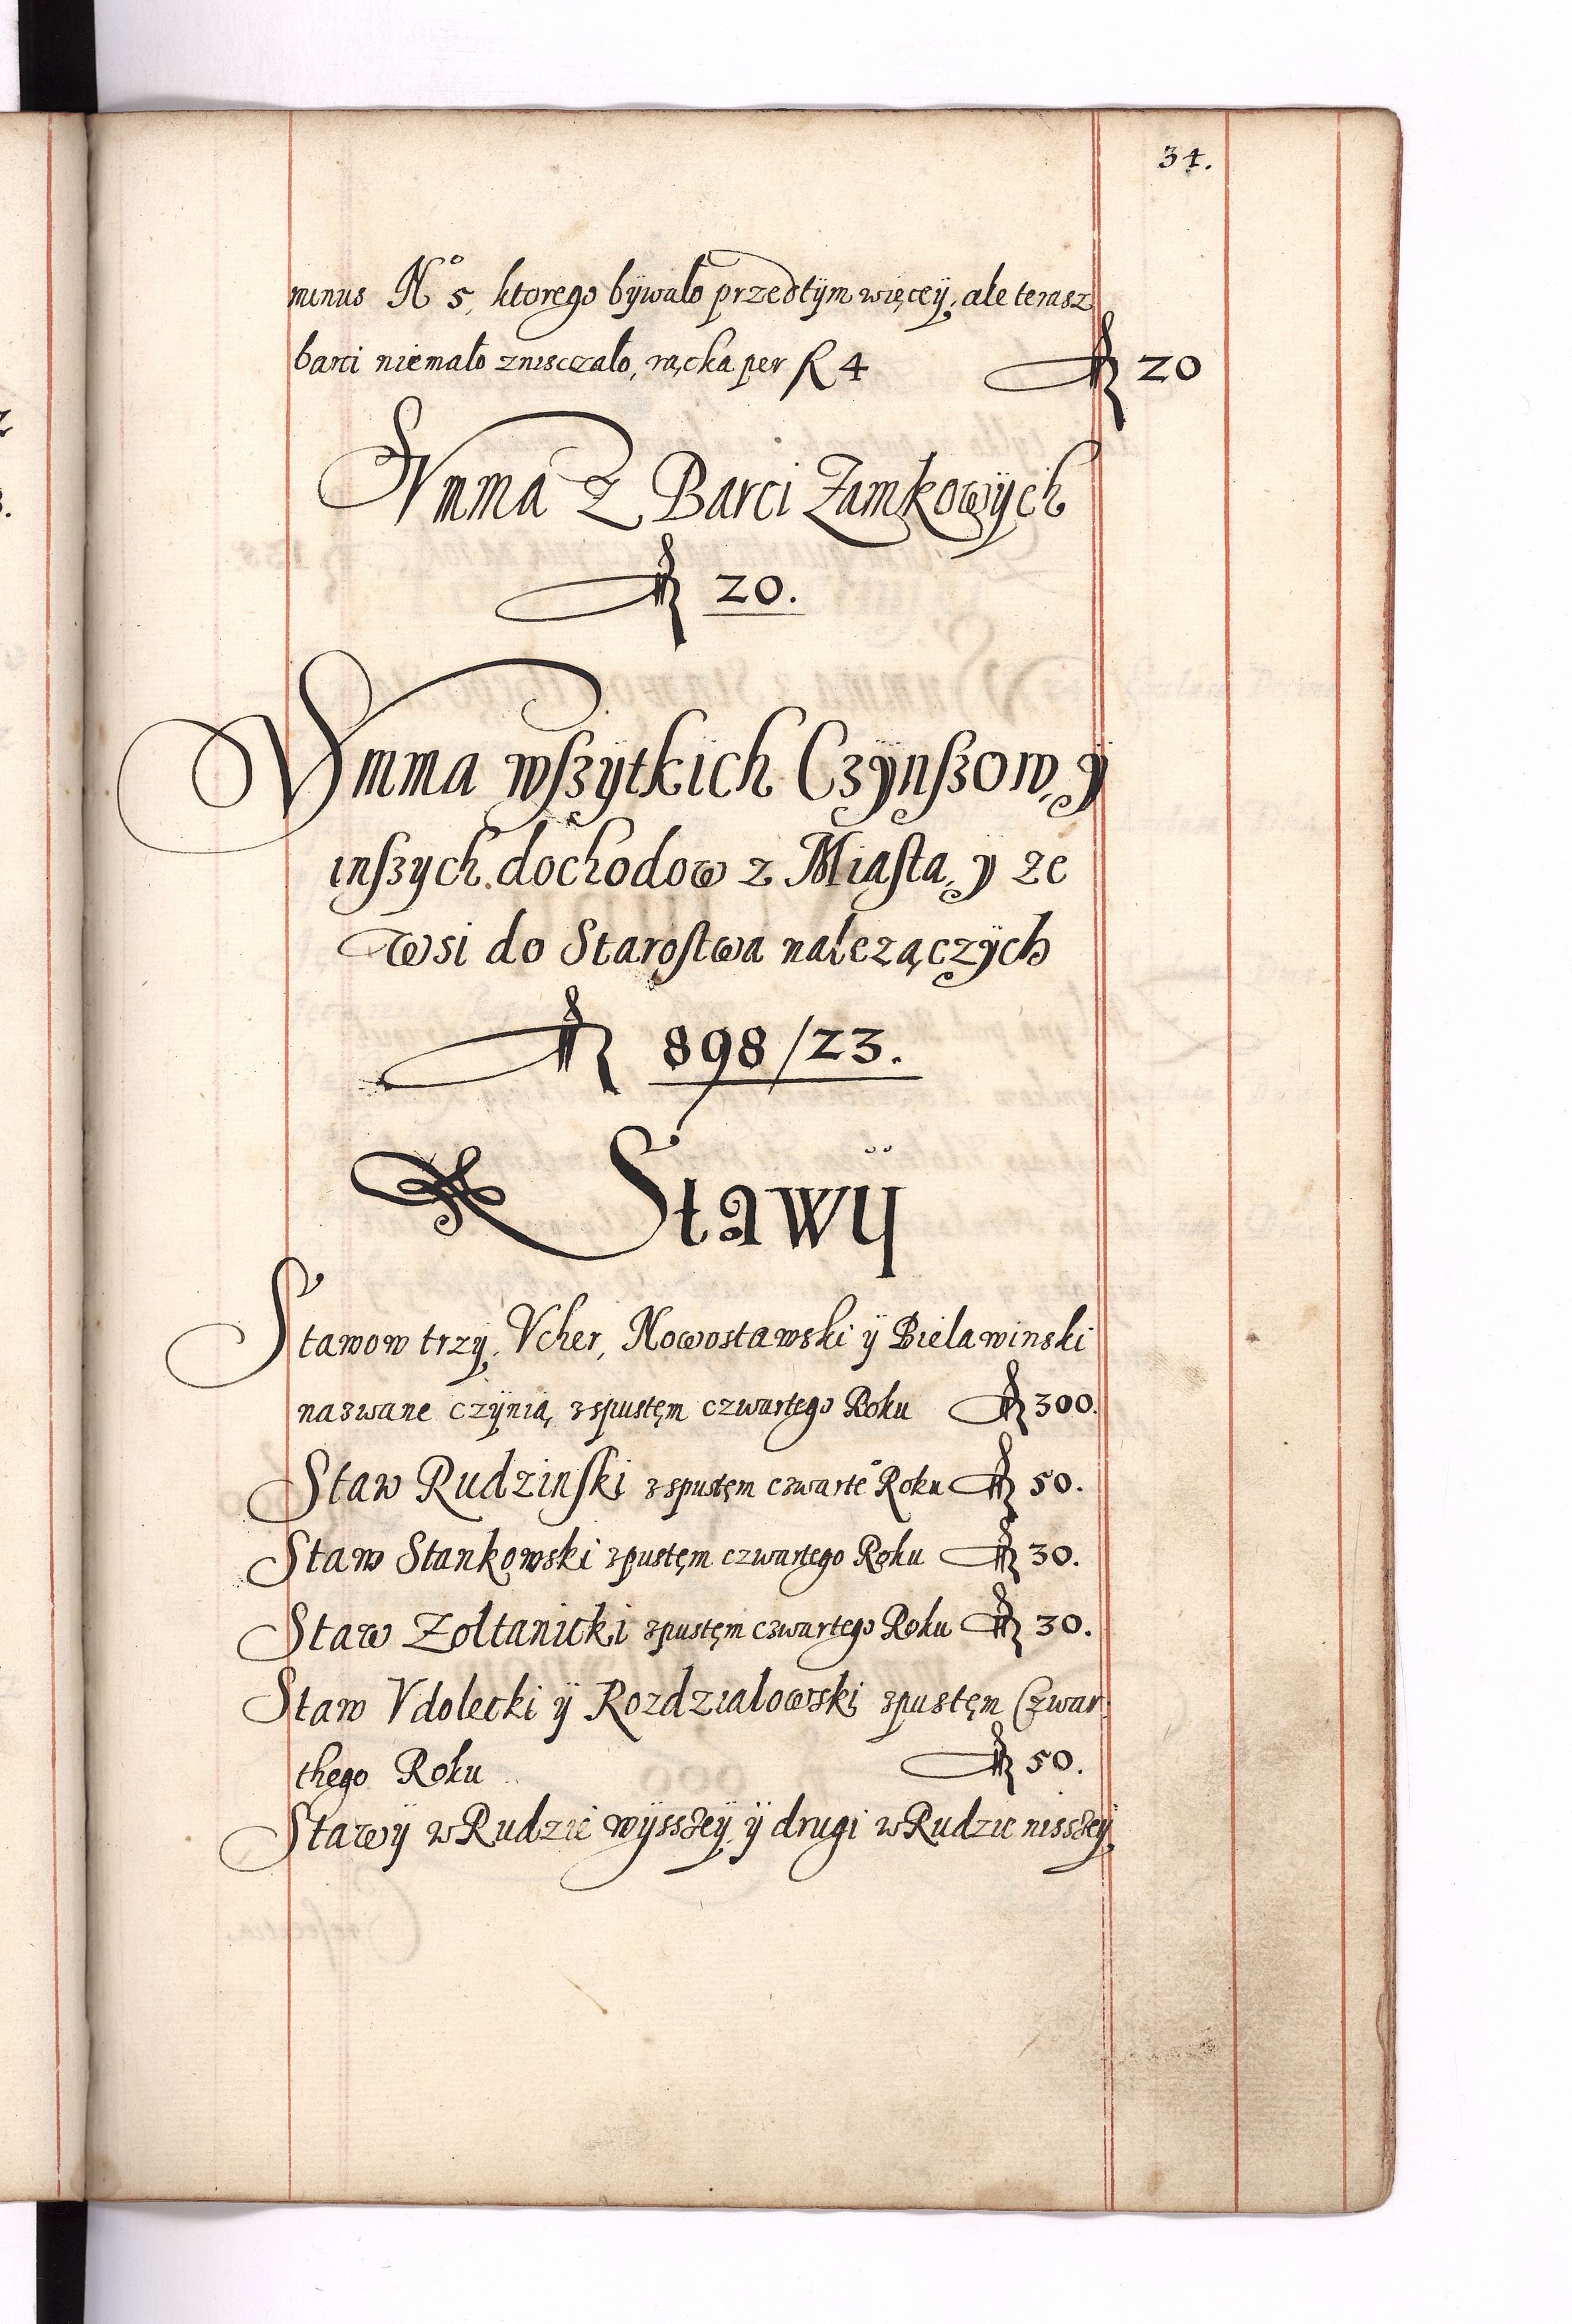 34.
minus No 5, ktorego bÿwało przedtÿm więceÿ, ale terasz
barci niemało znisczało, rącka per fl 4 fl 20
SVmma z Barci Zamkowÿch
fl 20.
SVmma wſzytkich Czÿnſzow, y
inſzych dochodow z Miaſta, y ze
wsi do Staroſtwa nalezączÿch
fl 898/23.
Stawÿ
Stawow trzy, Vcher, Nowostawski ÿ Bielawinski
nazwane czÿnią, z spustęm czwartego Roku fl 300.
Staw Rudzinſki z spustęm czwarte° Roku fl 50.
Staw Stankowski zpustęm czwartego Roku fl 30.
Staw Zoltanicki zpustęm czwartego Roku fl 30.
Staw Vdolecki ÿ Rozdzialowski zpustęm Czwar
thego Roku fl 50.
Stawÿ w Rudzie wÿsszeÿ, ÿ drugi w Rudzie nisszeÿ,